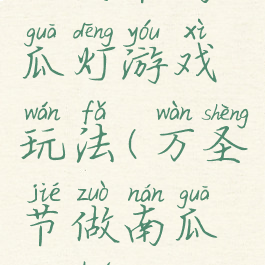 guā dēng yóu xì
瓜灯游戏
wán fǎ wàn shèng
玩法(万圣
jié zuò nán guā
节做南瓜